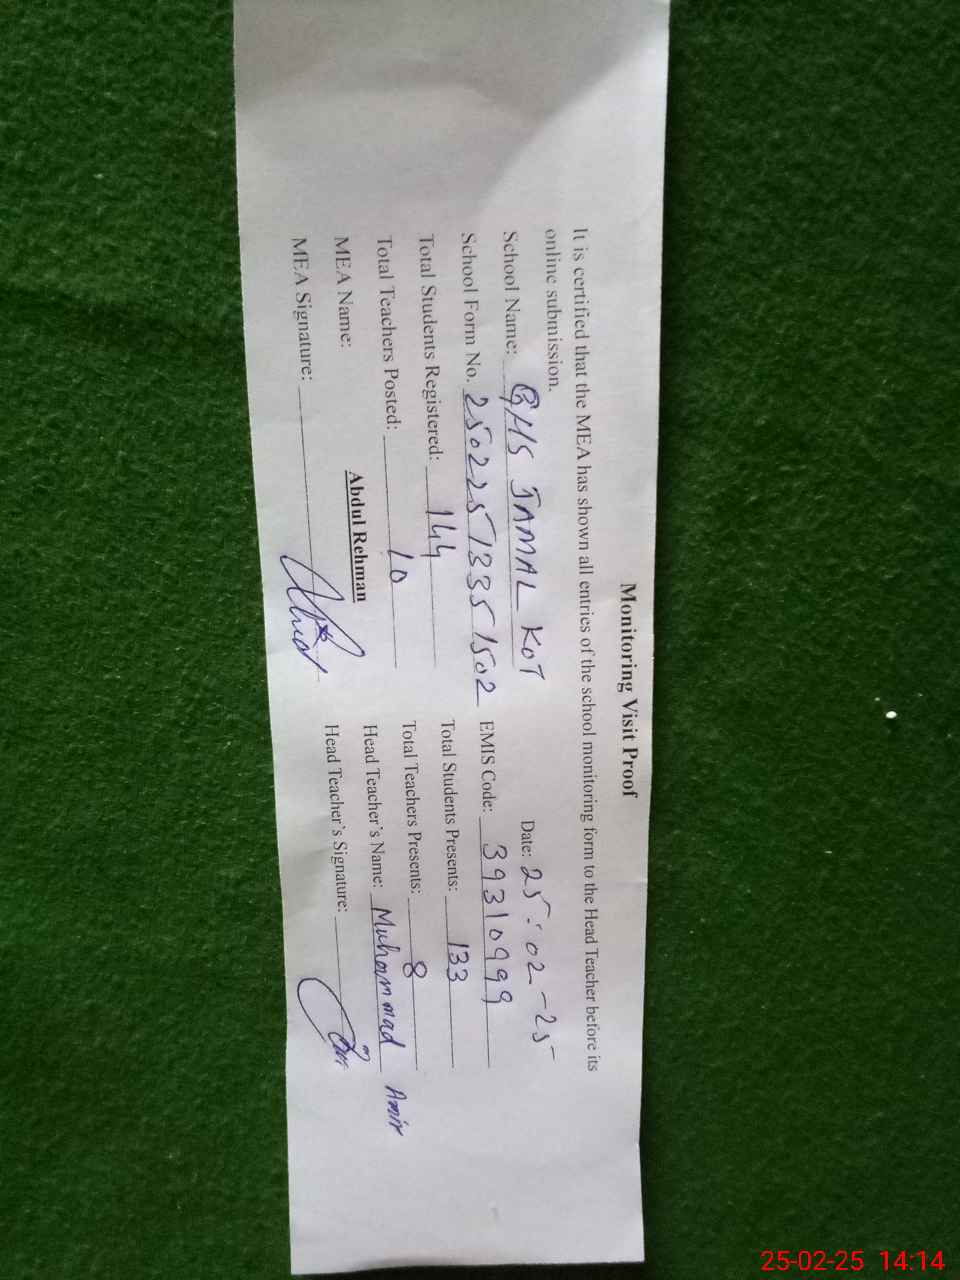 Monitoring Visit Proof
It is certified that the MEA has shown all entries of the school monitoring form to the Head Teacher before its
online submission.
Date: 25-02-25
School Name: GHS JAMAL KOT
EMIS Code: 39310999
School Form No. 25022513351502
Total Students Presents: 133
Total Students Registered: 144
Total Teachers Presents: 8
Total Teachers Posted: 10
Head Teacher's Name: Muhammad Amir
MEA Name: Abdul Rehman
Head Teacher's Signature:
MEA Signature:
25-02-25 14:14